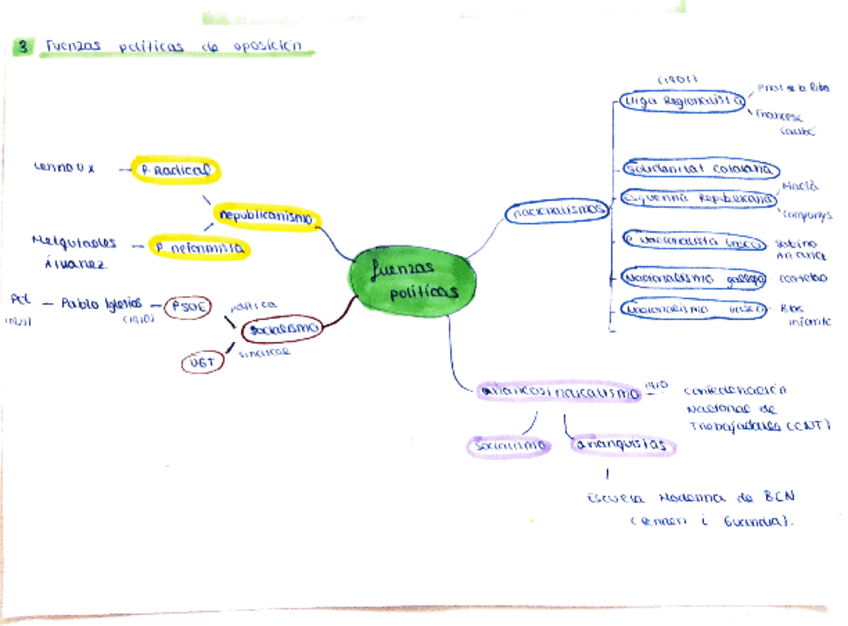 3 Fuerzas políticas de oposición
(1901)
Lliga Regionalista
Prat de la Riba
Francesc
Cambó
Lerroux
P. Radical
Solidaritat Catalana
Esquerra Republicana
Macià
Companys
nacionalismos
republicanismo
Melquiades
Álvarez
P. reformista
P. Nacionalista vasco
Sabino
Arana
fuerzas
políticas
Nacionalismo gallego
Castelao
PCE
Pablo Iglesias
(1910)
PSOE
política
socialismo
Nacionalismo vasco
Blas
infante
UGT
sindical
anarcosindicalismo
1910
Confederación
Nacional de
Trabajadores (CNT)
socialismo
anarquistas
Escuela Moderna de BCN
(Ferrer i Guardia).